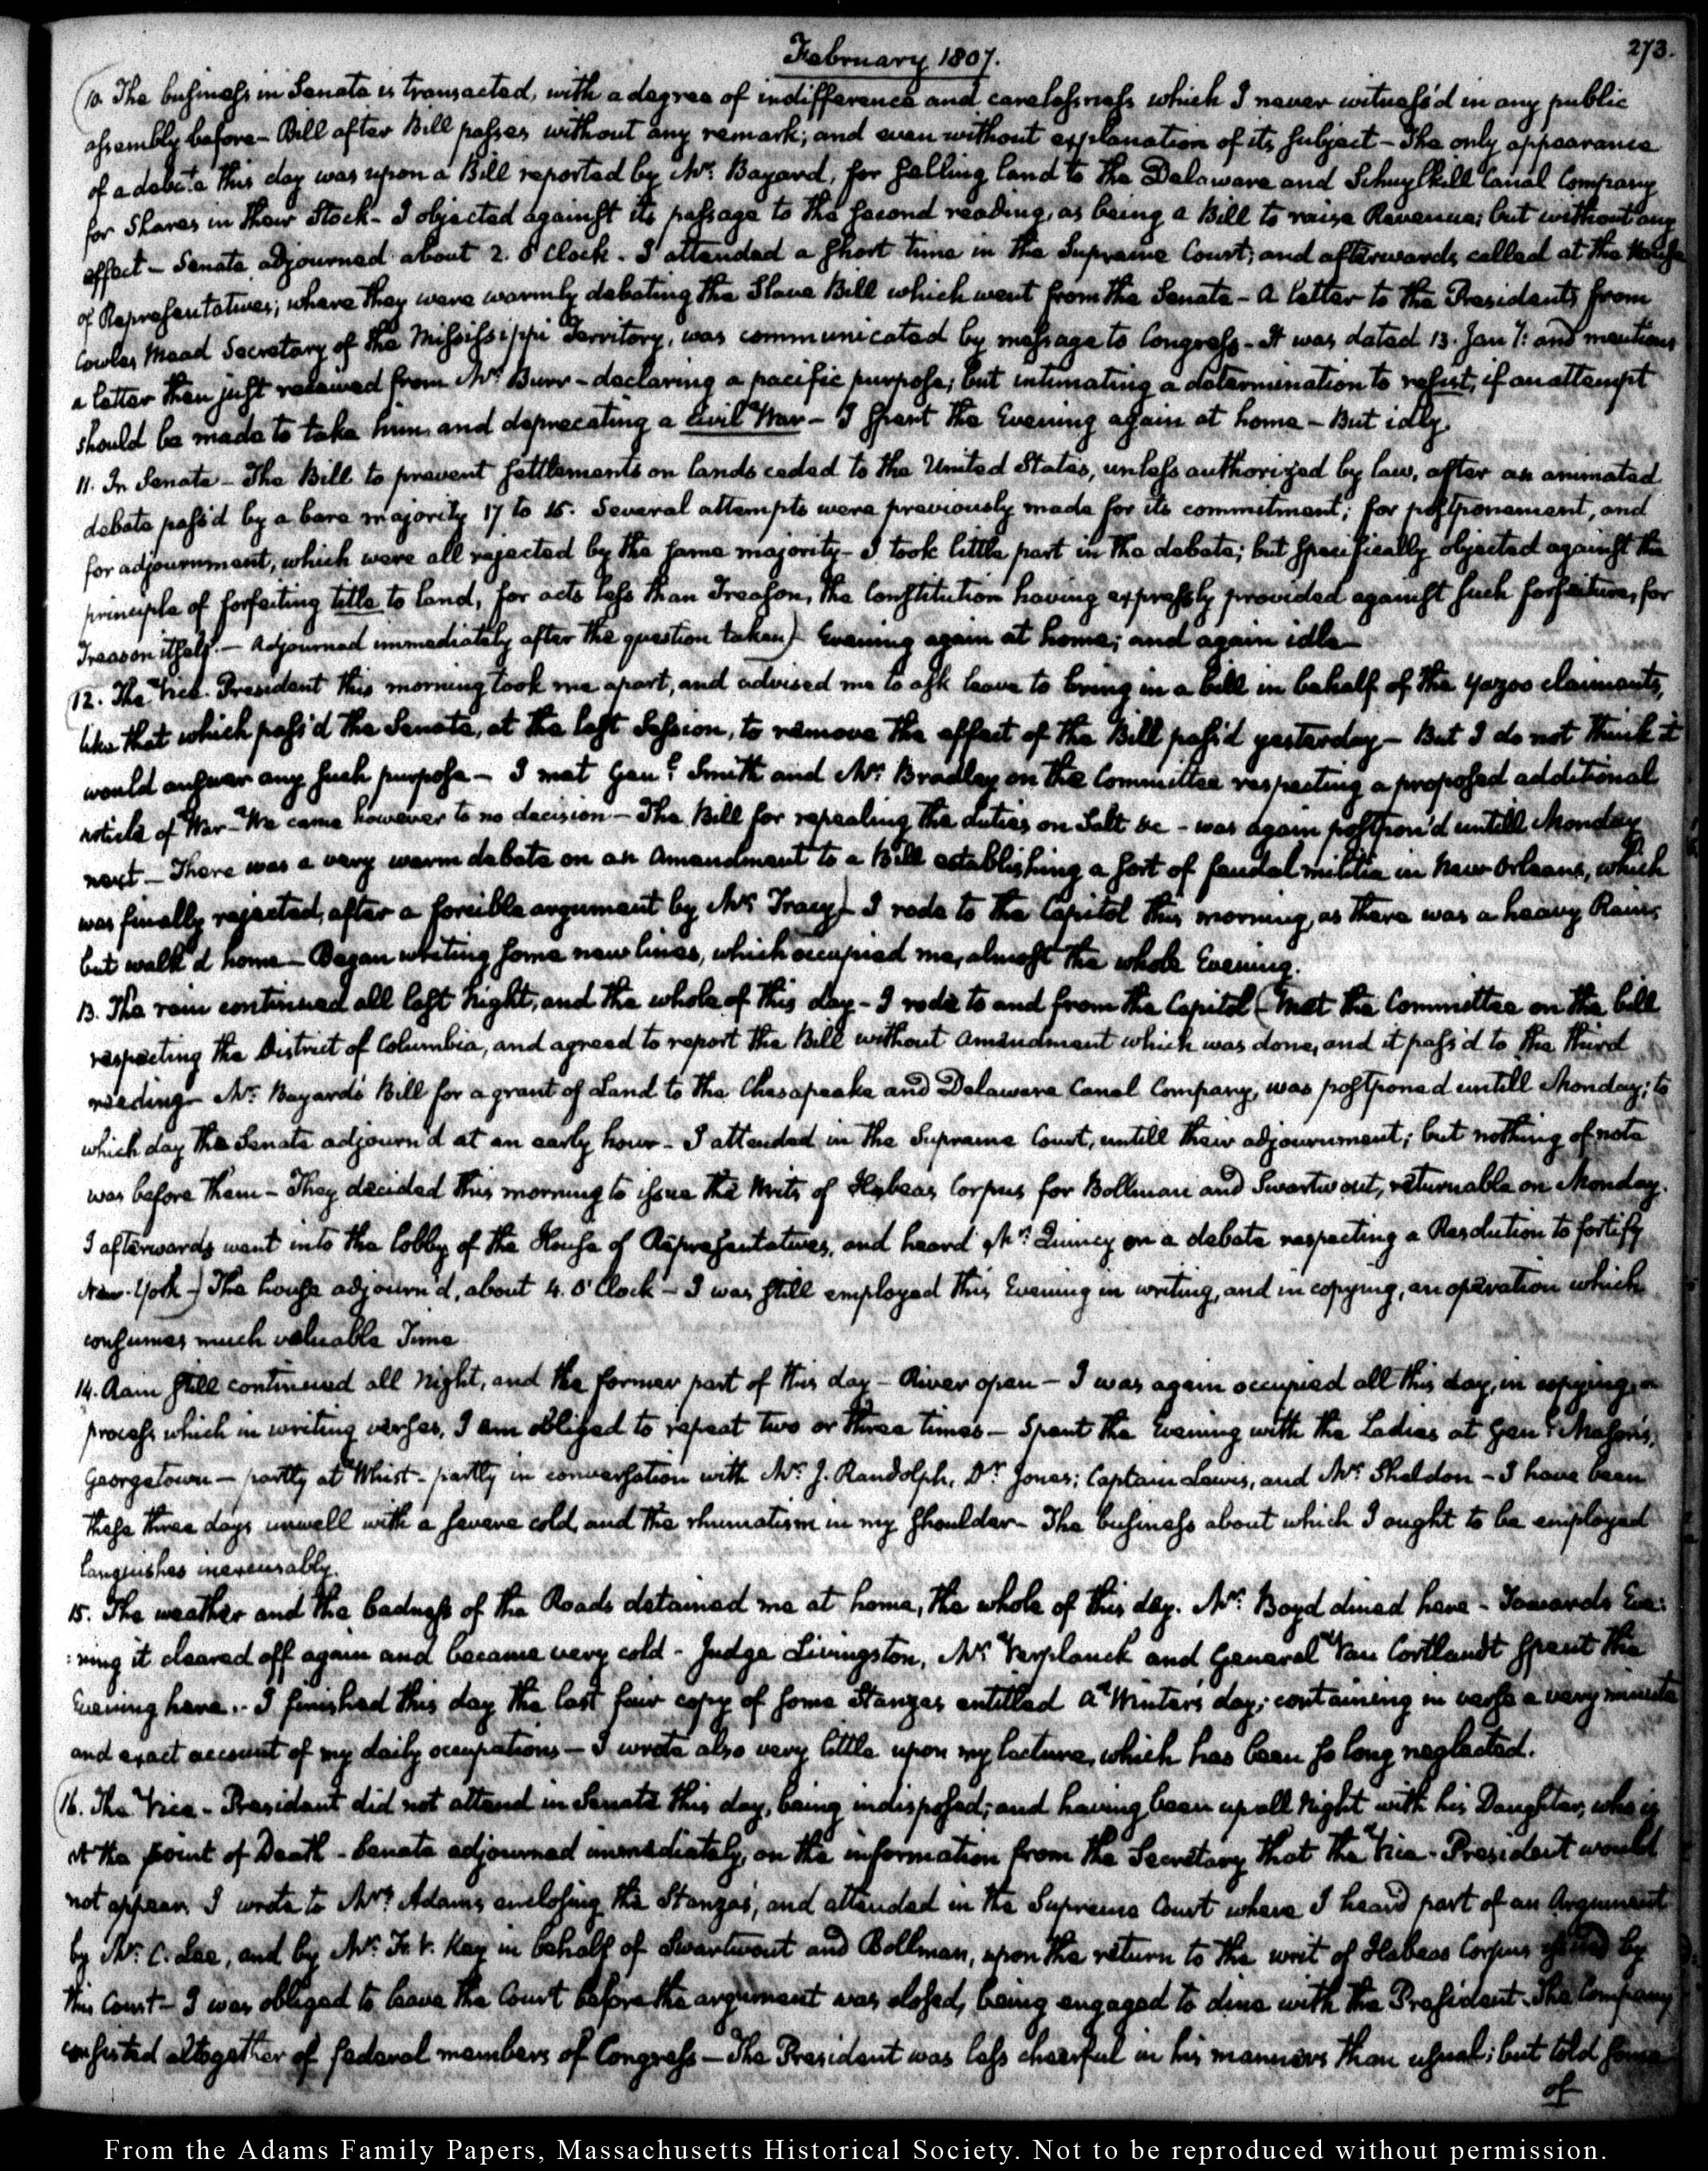 February 1807.
273.
10. The business in Senate is transacted, with a degree of indifference and carelessness which I never witness'd in any public
assembly before - Bill after Bill passes without any remark; and even without explanation of its subject - The only appearance
of a debate this day was upon a Bill reported by Mr: Bayard, for selling land to the Delaware and Schuylkill Canal Company
for Shares in their Stock - I objected against its passage to the second reading, as being a Bill to raise Revenue; but without any
effect - Senate adjourned about 2. O'Clock - I attended a short time in the Supreme Court; and afterwards called at the House
of Representatives; where they were warmly debating the Slave Bill which went from the Senate - A letter to the Presidents from
Cowles Mead Secretary of the Mississippi Territory, was communicated by message to Congress - It was dated 13. Jany: and mentions
a letter then just received from Mr: Burr - declaring a pacific purpose; but intimating a determination to resist, if an attempt
should be made to take him, and deprecating a Civil War - I spent the Evening again at home - But idly.
11. In Senate - The Bill to prevent settlements on lands ceded to the United States, unless authorized by law, after an animated
debate pass'd by a bare majority 17 to 15. Several attempts were previously made for its commitment; for postponement, and
for adjournment, which were all rejected by the same majority - I took little part in the debate; but specifically objected against the
principle of forfeiting title to land, for acts less than Treason, the Constitution having expressly provided against such forfeiture, for
Treason itself. - Adjourned immediately after the question taken) Evening again at home; and again idle -
(12. The Vice-President this morning took me apart, and advised me to ask leave to bring in a bill in behalf of the Yazoo claimants,
like that which pass'd the Senate, at the last Session, to remove the effect of the Bill pass'd yesterday - But I do not think it
would answer any such purpose - I met Genl: Smith and Mr: Bradley on the Committee respecting a proposed additional
article of War - We came however to no decision - The Bill for repealing the duties on Salt &c - was again postpon'd untill Monday
next - There was a very warm debate on an Amendment to a Bill establishing a sort of feudal militia in New Orleans, which
was finally rejected, after a forcible argument by Mr: Tracy) I rode to the Capitol this morning, as there was a heavy Rain;
but walk'd home - Began writing some new lines, which occupied me, almost the whole Evening.
13. The rain continued all last Night, and the whole of this day - I rode to and from the Capitol (Met the Committee on the bill
respecting the District of Columbia, and agreed to report the Bill without Amendment which was done, and it pass'd to the third
reading - Mr: Bayard's Bill for a grant of Land to the Chesapeake and Delaware Canal Company, was postponed untill Monday; to
which day the Senate adjourn'd at an early hour - I attended in the Supreme Court, untill their adjournment; but nothing of note
was before them - They decided this morning to issue the Writs of Habeas Corpus for Bollman and Swartwout, returnable on Monday.
I afterwards went into the lobby of the House of Representatives, and heard Mr: Quincy on a debate respecting a Resolution to fortify
New-York -) The house adjourn'd, about 4. O'Clock - I was still employed this Evening in writing, and in copying, an operation which
consumes much valuable Time
14. Rain still continued all Night, and the former part of this day - River open - I was again occupied all this day, in copying, a
process which in writing verses, I am obliged to repeat two or three times - Spent the Evening with the Ladies at Genl: Mason's,
Georgetown - partly at Whist - partly in conversation with Mr: J. Randolph, Dr: Jones; Captain Lewis, and Mr: Sheldon - I have been
these three days unwell with a severe cold, and the rhumatism in my shoulder - The business about which I ought to be employed
languishes inexcusably.
15. The weather and the badness of the Roads detained me at home, the whole of this day. Mr: Boyd dined here - Towards Eve:
:ning it cleared off again and became very cold - Judge Livingston, Mr: Verplanck and General Van Cortlandt spent the
Evening here. - I finished this day the last fair copy of some Stanzas entitled A Winter's day; containing in verse a very minute
and exact account of my daily occupations - I wrote also very little upon my lecture, which has been so long neglected.
(16. The Vice-President did not attend in Senate this day, being indisposed; and having been up all Night with his Daughter, who is
at the point of Death - Senate adjourned immediately, on the information from the Secretary that the Vice-President would
not appear. I wrote to Mrs: Adams enclosing the Stanzas, and attended in the Supreme Court where I heard part of an Argument
by Mr: C. Lee, and by Mr: F. K. Key in behalf of Swartwout and Bollman, upon the return to the writ of Habeas Corpus issued by
this Court - I was obliged to leave the Court before the argument was closed, being engaged to dine with the President - The Company
consisted altogether of federal members of Congress - The President was less cheerful in his manners than usual; but told some
of
From the Adams Family Papers, Massachusetts Historical Society. Not to be reproduced without permission.